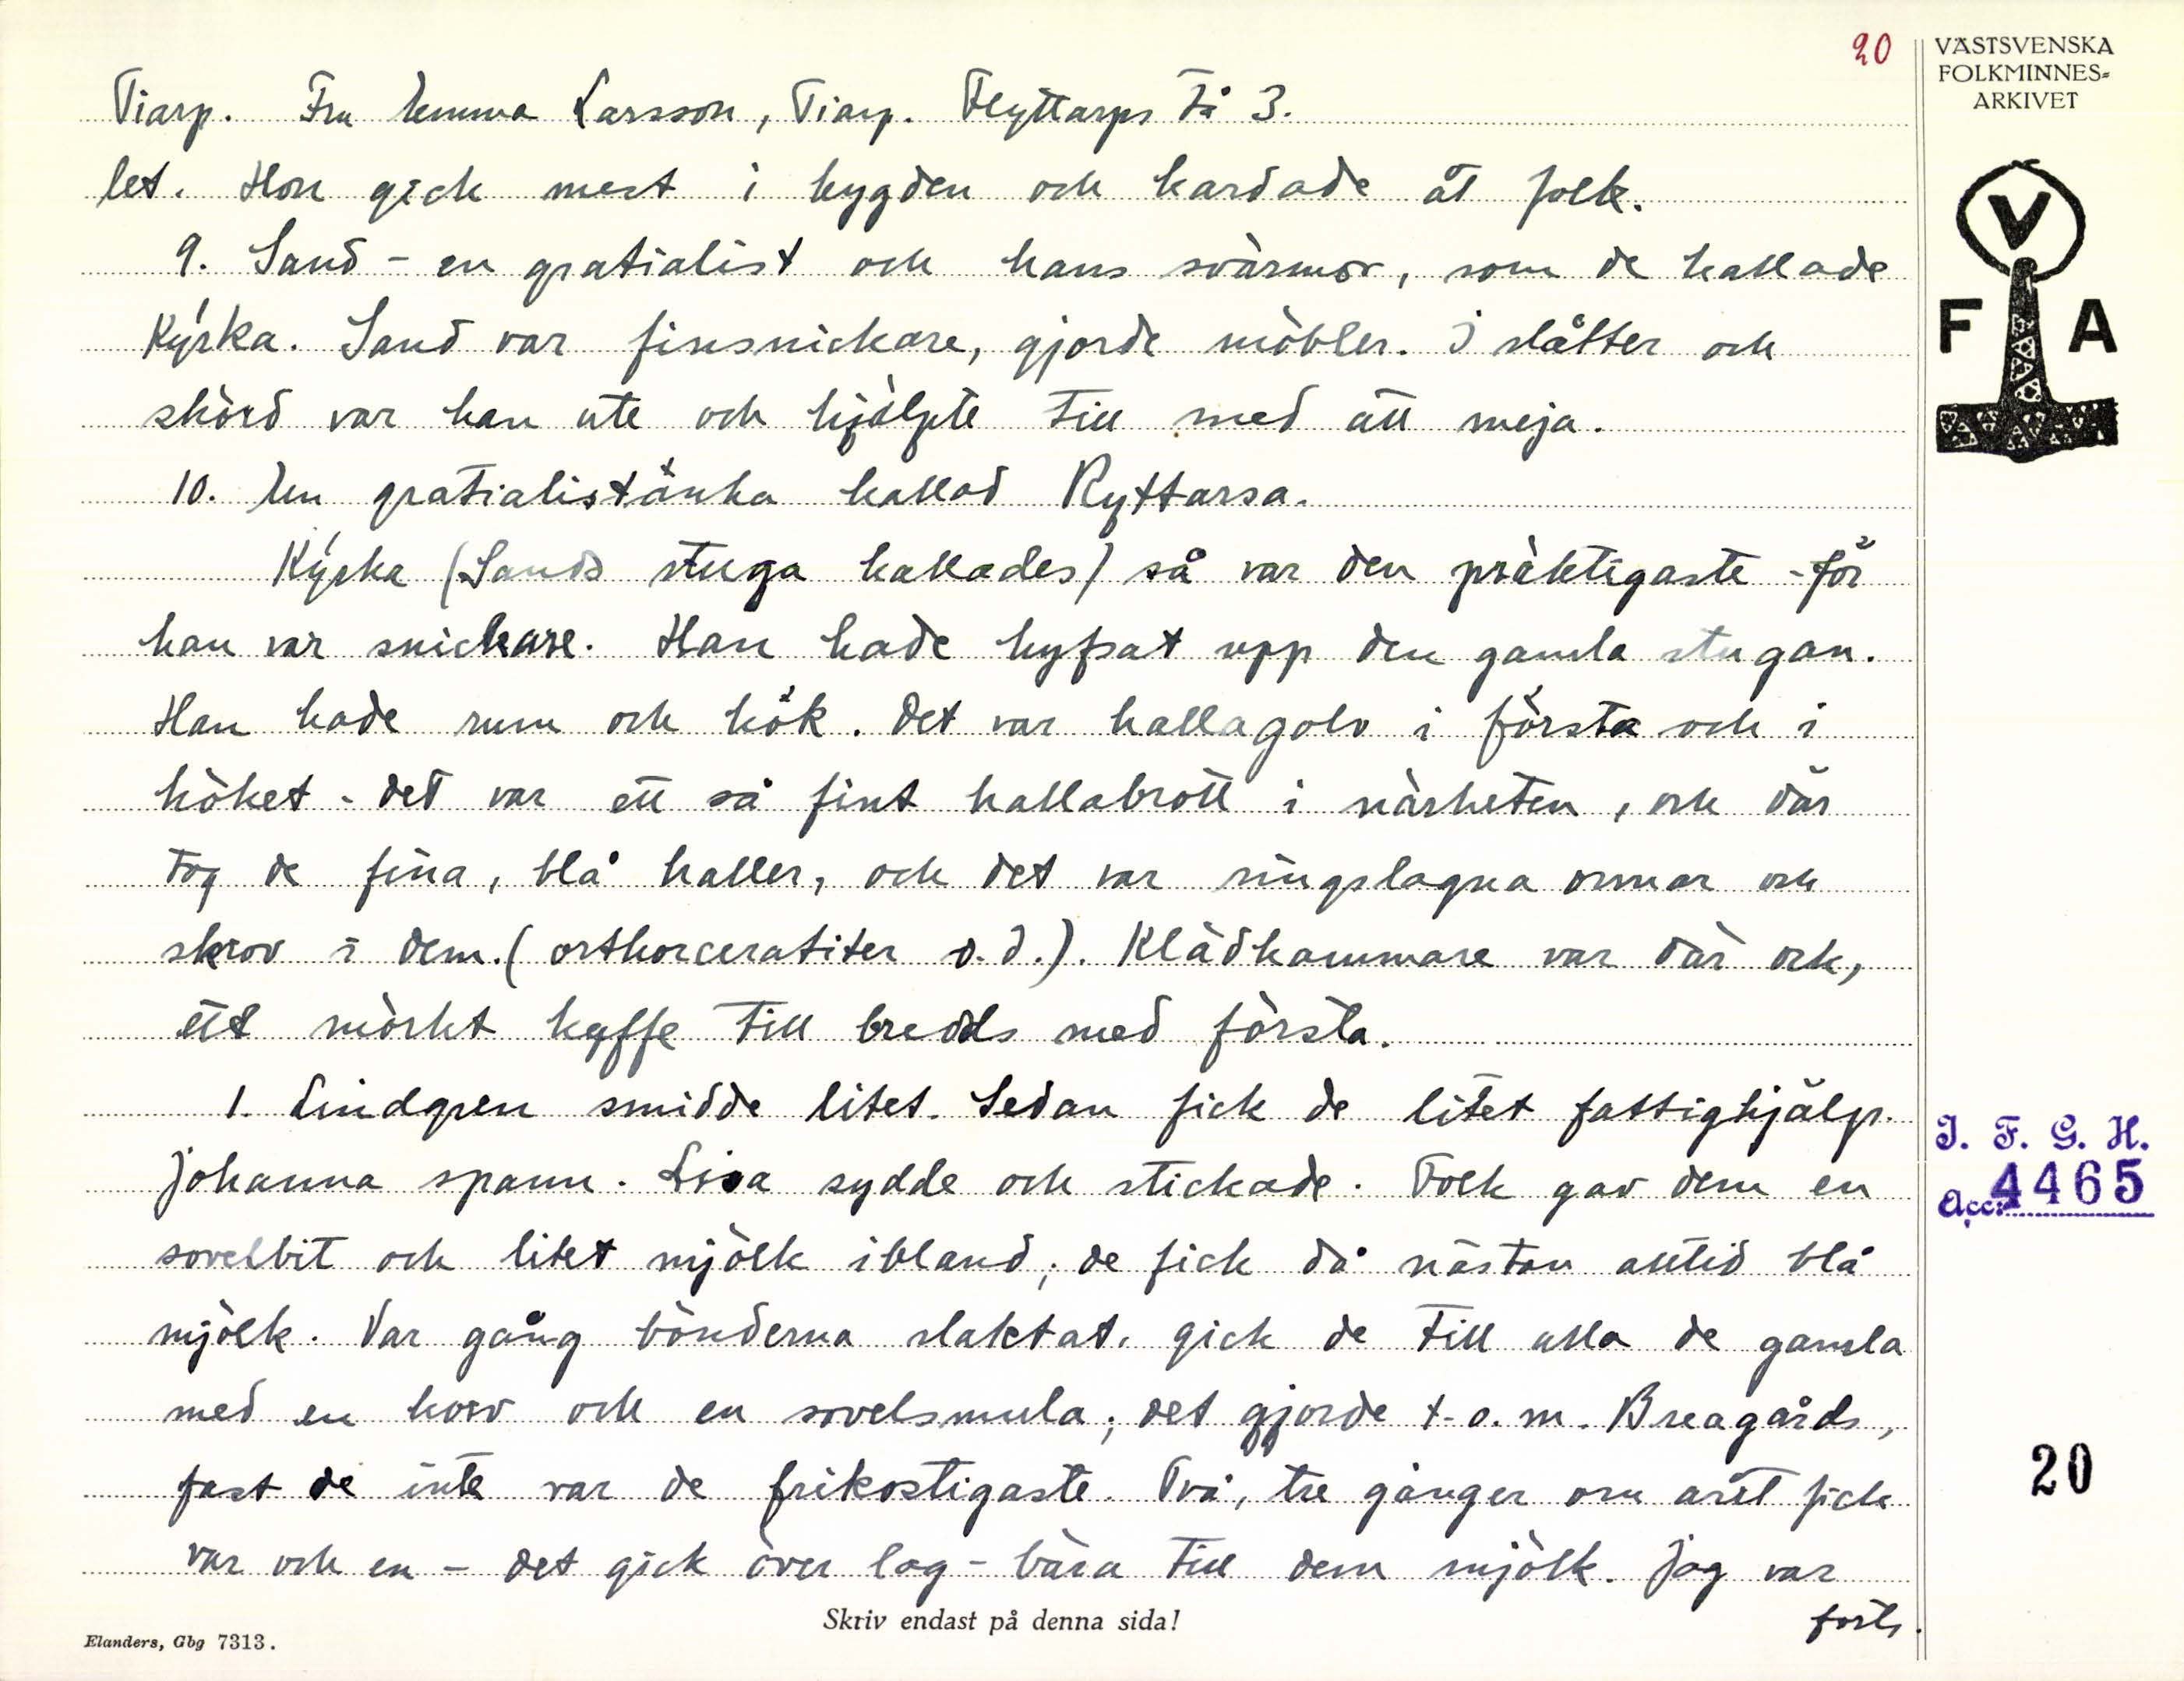 20
VÄSTSVENSKA
FOLKMINNES=
ARKIVET
V
F A
Tiarp. Fru Emma Larsson, Tiarp. Flyttarps Få 3.
let. Hon gick mest i bygden och kardade åt folk.
9. Sand - en gratialist och hans svärmor, som de kallade
Kýrka. Sand var finsnickare, gjorde möbler. I slåtter och
skörd var han ute och hjälpte till med att meja.
10. En gratialistänka kallad Ryttarsa.
Kýrka (Sands stuga kallades) så var den präktigaste - för
han var snickare. Han hade hyfsat upp den gamla stugan.
Han hade rum och kök. Det var hallagolv i första och i
köket - det var ett så fint hallabrott i närheten, och där
tog de fina, blå haller, och det var ringslagna ormar och
skrov i dem. (orthorceratiter o.d.). Klädkammare var där ock,
ett mörkt kyffe till bredds med första.
1. Lindgren smidde litet. Sedan fick de litet fattighjälp.
Johanna spann. Lisa sydde och stickade. Folk gav dem en
sovelbit och litet mjölk ibland; de fick då nästan alltid blå
mjölk. Var gång bönderna slaktat, gick de till alla de gamla
med en korv och en sovelsmula; det gjorde t.o.m. Breagårds,
fast de inte var de frikostigaste. Två, tre gånger om året fick
var och en - det gick över lag - bära till dem mjölk. Jag var
forts.
I. F. G. H.
Acc. 4465
20
Skriv endast på denna sida!
Elanders, Gbg 7313.